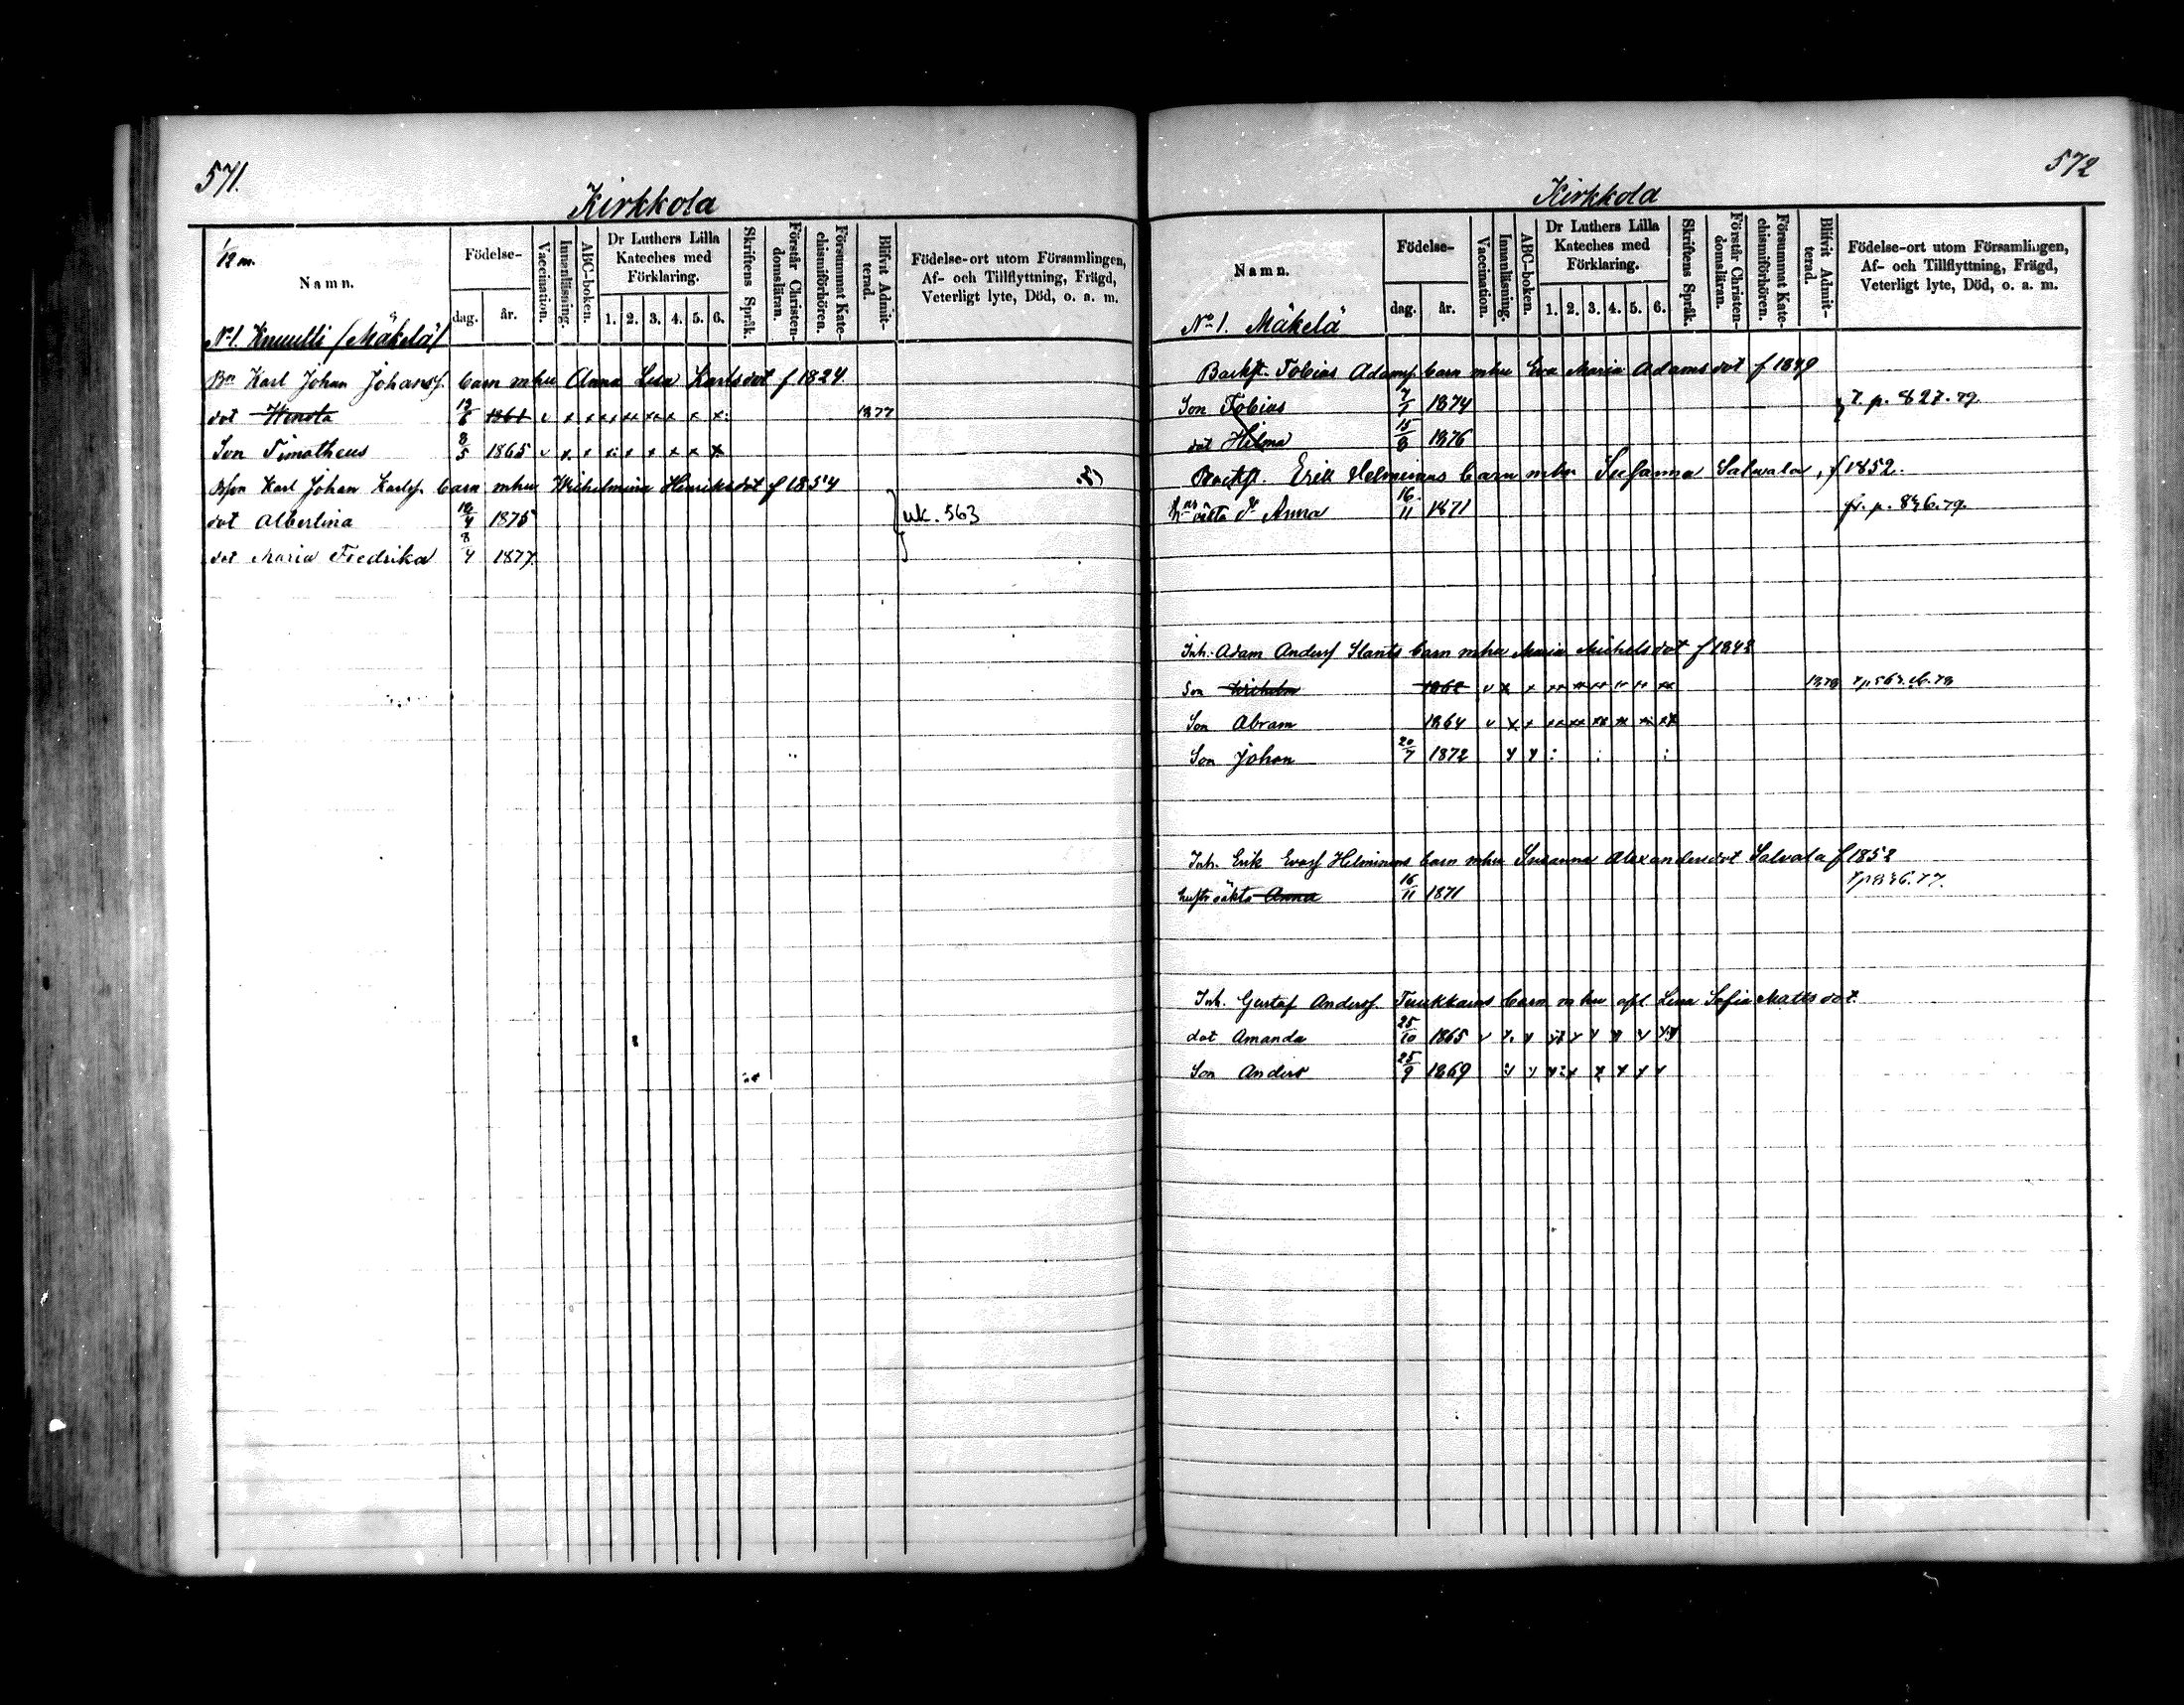 571.
Kirkkola
1/2 m.
Namn.
Födelse-
dag.
år.
Vaccination.
Innanläsning.
ABC-boken.
Dr Luthers Lilla
Kateches med
Förklaring.
1. 2. 3. 4. 5. 6.
Skriftens Språk.
Förstår Christen-
domsläran.
Försummat Kate-
chismiförhören.
Blifvit Admit-
terad.
Födelse-ort utom Församlingen,
Af- och Tillflyttning, Frägd,
Veterligt lyte, Död, o. a. m.
No 1. Knuutti (Mäkelä)
Bn Karl Johan Johanss. barn mhu Anna Lisa Karlsdot f 1824.
dot 12/6 1861 v x x 1877
Son Timotheus 8/5 1865 v x x
Karl Johan Karlss. barn mhu Wilhelmina Henriksdot f 1854
dot Albertina 1875
uk. 563
dot Maria Fredrika 8/4 1877.
572
Kirkkola
Namn.
Födelse-
dag.
år.
Vaccination.
Innanläsning.
ABC-boken.
Dr Luthers Lilla
Kateches med
Förklaring.
1. 2. 3. 4. 5. 6.
Skriftens Språk.
Förstår Christen-
domsläran.
Försummat Kate-
chismiförhören.
Blifvit Admit-
terad.
Födelse-ort utom Församlingen,
Af- och Tillflyttning, Frägd,
Veterligt lyte, Död, o. a. m.
No 1. Mäkelä
Backst. Tobias Adamss. barn mhu Eva Maria Adamsdot f 1849
Son Tobias 1874 T. p. 827. 79.
dot Hilma 15/8 1876
Backst. Erik Helminens barn mhu Susanna Salvala, f 1852.
oäkta dr Anna 16/11 1871 fr. p. 846. 79.
Inh. Adam Anderss Slants barn mhu Maria Michelsdot f 1842
Son Wilhelm 1862 v x x 1878
Son Abram 1864 v x x
Son Johan 20/7 1872
Inh. Erik Evass Helminens barn mhu Susanna Alexandersdot Salvala f 1852
hustr oäkta Anna 16/11 1871
Inh. Gustaf Anderss. barn m hu afl Lisa Sofia Mattsdot.
dot Amanda 25/10 1865
Son Anders 25/9 1869